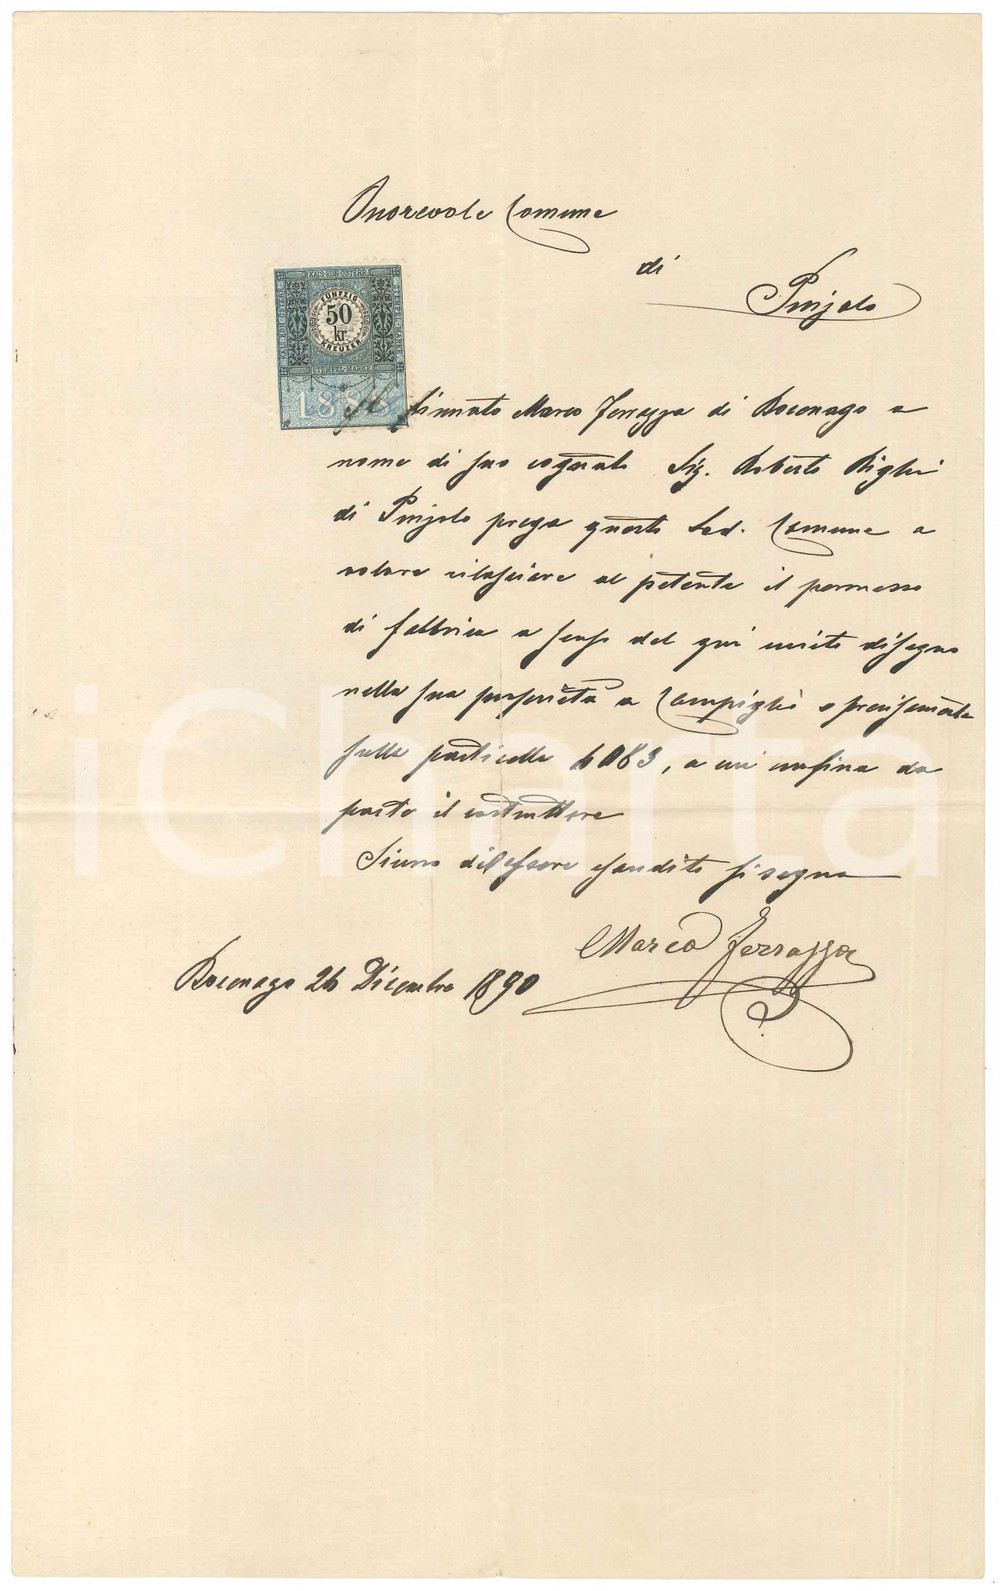 Onorevole Comune
di
Pinzolo
KAIS. KÖN. ÖSTERR.
STEMPEL-MARKE
FÜNFZIG
50
kr.
KREUZER
STEMPEL-MARKE
188
Il firmato Marco Ferrazza di Bocenago a
nome di suo cognato Sig. Roberto Righi
di Pinzolo prega questo Lod. Comune a
volere rilasciare al petente il permesso
di fabbrica a senso del qui unito disegno
nella sua proprietà a Campiglio e precisamente
sulla particella 4083, a cui confina da
parte il costruttore
Sicuro di essere esaudito si segna
Marco Ferrazza
Bocenago 26 Dicembre 1890
Charta